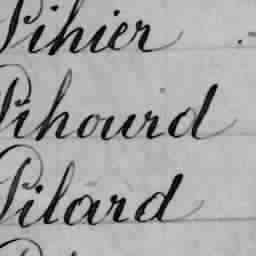 Pihier
Pihourd
Pilard